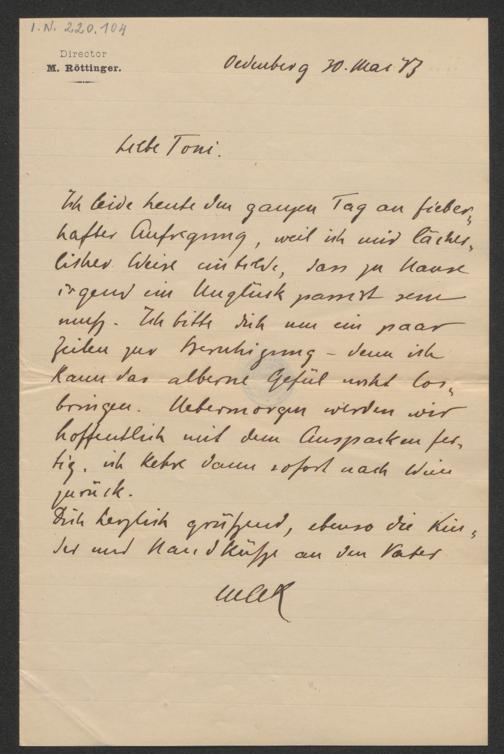 I.N. 220.104
Director
M. Röttinger.
Oedenburg 30. Mai 83
Liebe Toni.
Ich leide heute den ganzen Tag an fieber-
hafter Aufregung, weil ich mir lächer-
licher Weise einbilde, dass zu Hause
irgend ein Unglück passirt sein
muß. Ich bitte dich um ein paar
Zeilen zur Beruhigung – denn ich
kann das alberne Gefül nicht los-
bringen. Uebermorgen werden wir
hoffentlich mit dem Auspacken fer-
tig, ich kehre dann sofort nach Wien
zurück.
Dich herzlich grüßend, ebenso die Kin-
der und Handküße an den Vater